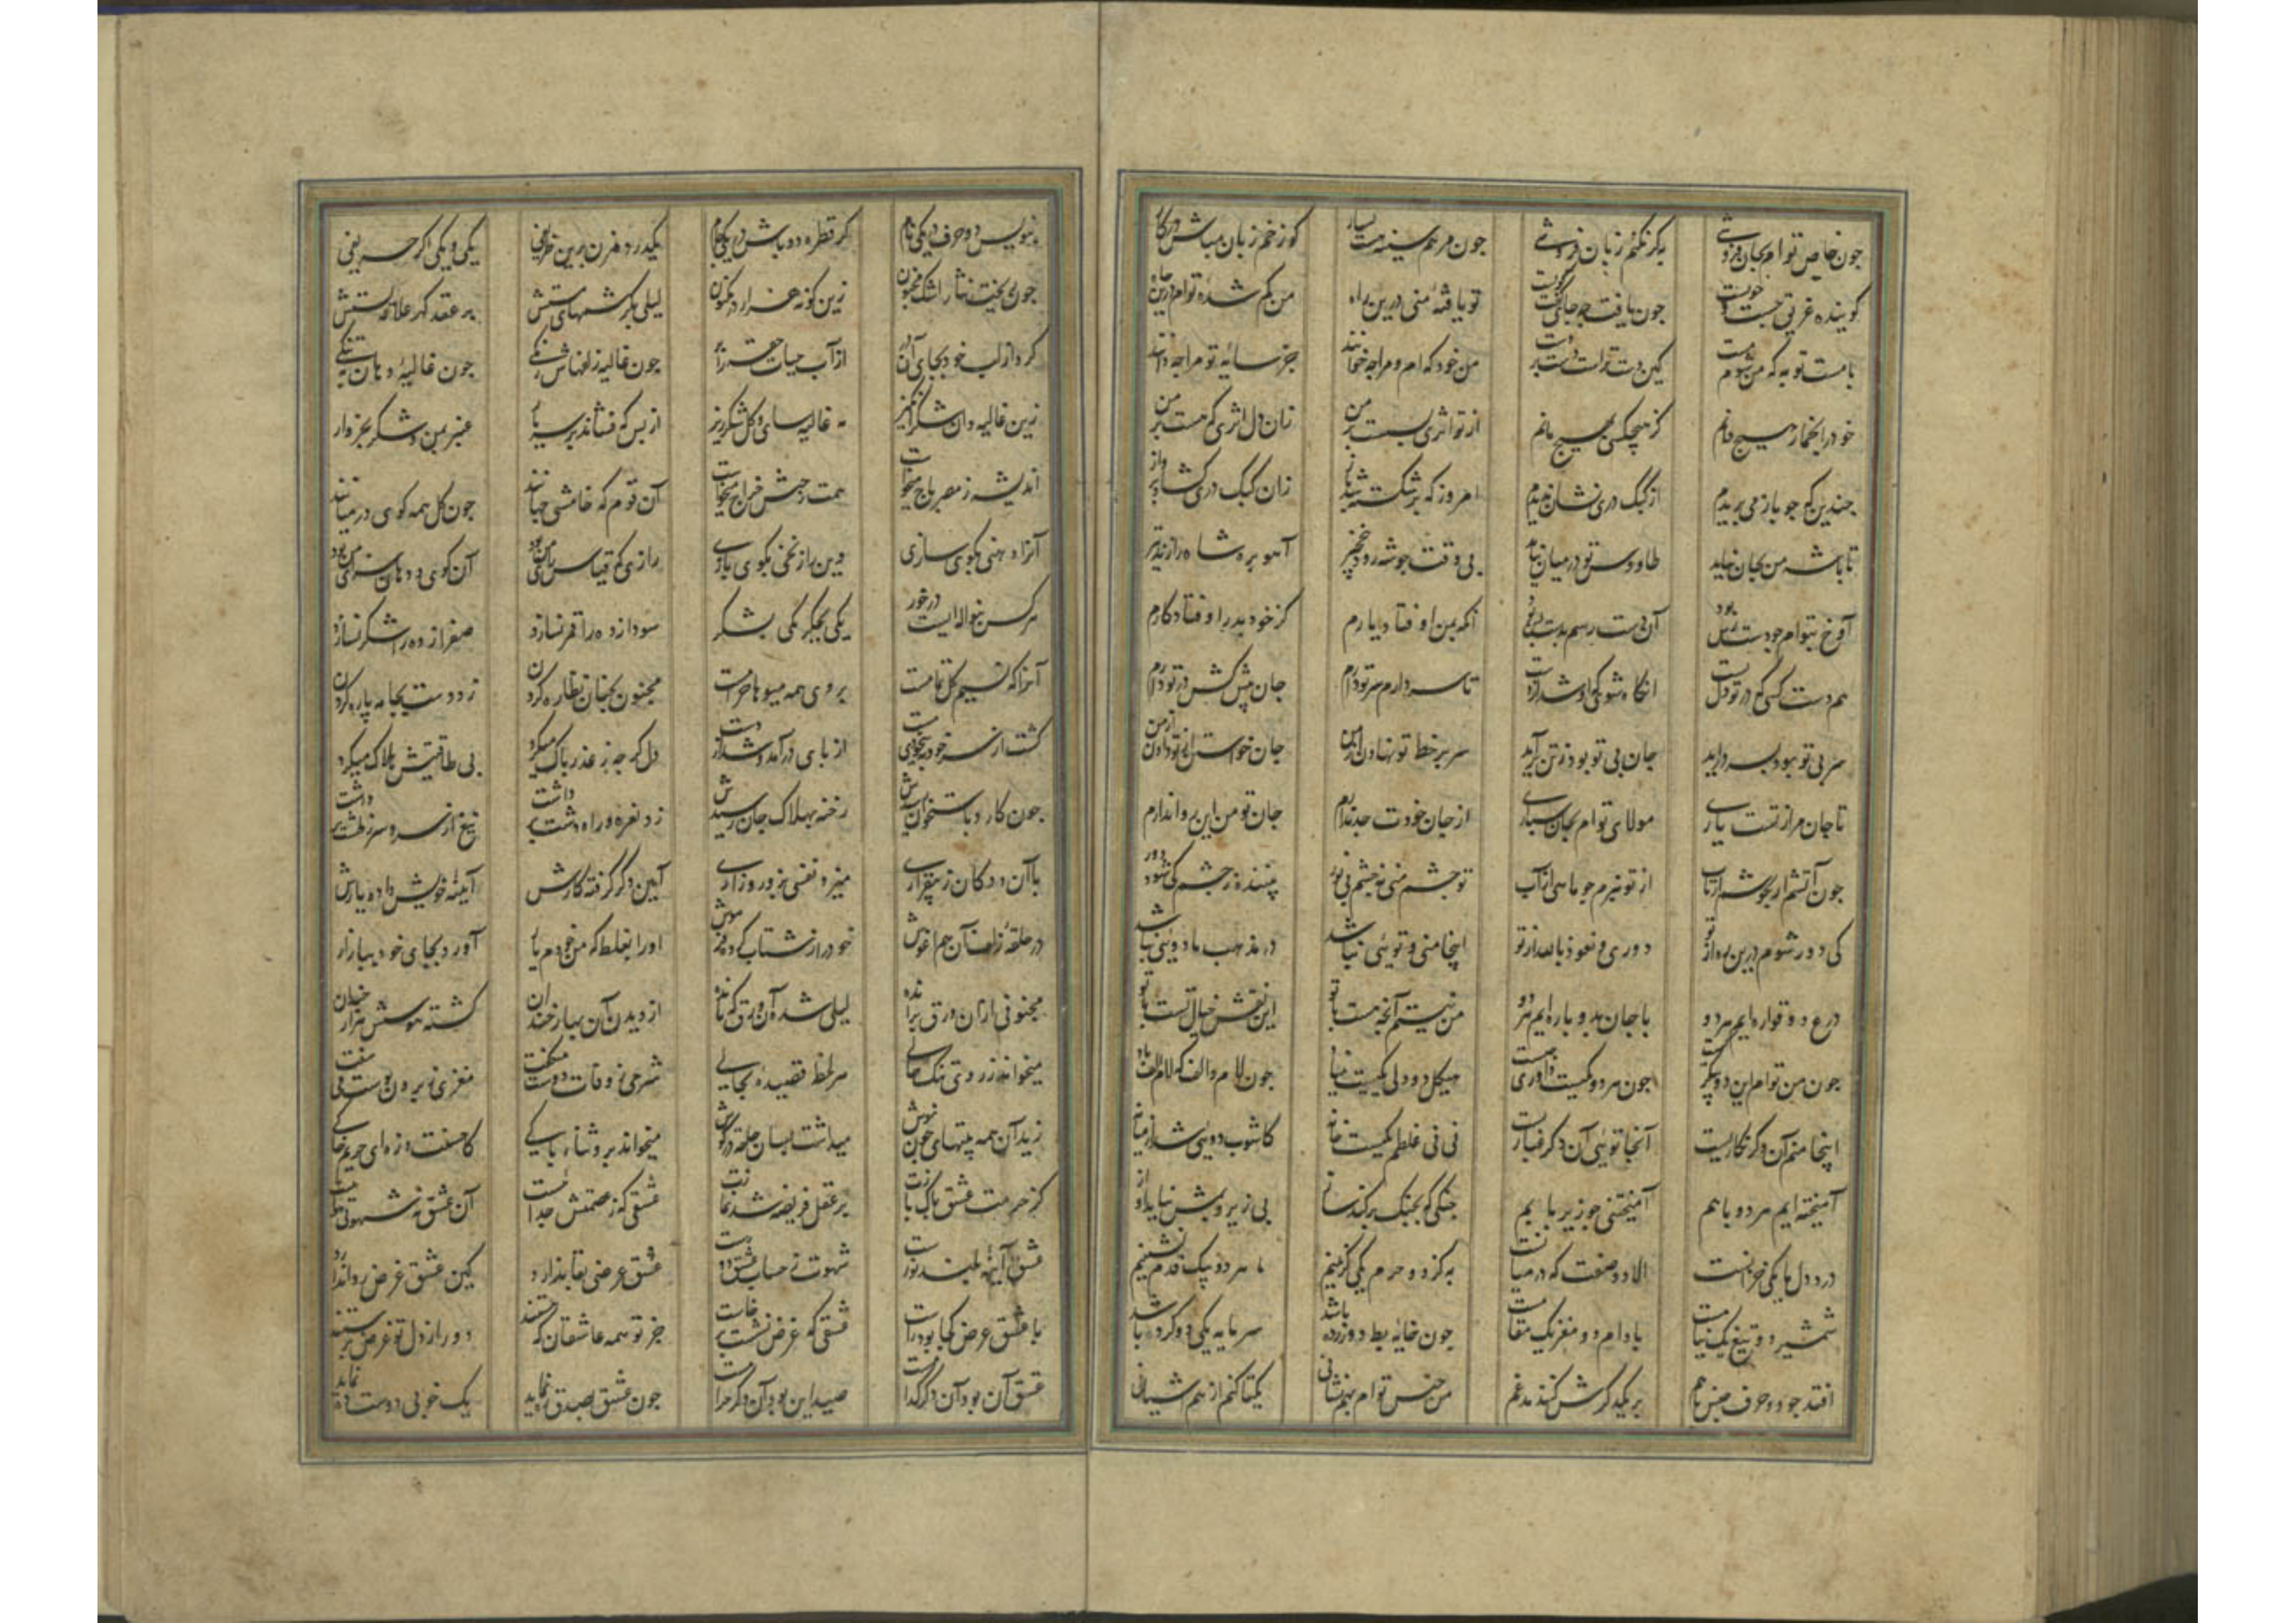 جون خاص توام بجان فروشی به کز نکنم زبان فروشی جون مرهم سینه هست بسیار کو زخم زبان مباش در کار
کوینده غریق جست جون یافت چو جای تو یافته منی درین راه من کم شده توام درین جاه
با هست تو به که من شوم هست کین دست تراست دست بر دست من خود که ام و مرا جه خوانند جز سایه تو مرا جه دانند
خود را بشمار هیچ دانم کز هیچکسی بهیچ مانم از تو اثری بر من زان دل اثری که هست بر من
جندین که جو باز می پریدم از کبک دری نشان ندیدم امروز که بر شکست شد باز زان کبک دری کشاد پرواز
تا باشه من بجان نیاید طاوس تو در میان نیاید بی وقت جو شه رود بنخجیر آهو بره شاه را زند تیر
آوخ بتوام جو دست رس بود آن دست رسم بدست آنکه بمن اوفتاد یارم کز خود بدر اوفتاد کارم
هم دست کسی که در تو دل بست انکاه شوی که او شد از دست تا سر دارم سر تو دارم جان پیش کش در تو دارم
سر بی تو بود بسر در آید جان بی تو بود ز تن بر آید سر بر خط تو نهادن از من جان خواستن از تو دادن از من
تا جان مرا ز تست یاری مولای توام بجان سپاری از جان خودت جدا ندارم جان تو من این روا ندارم
جون آتشم ار بجوشم از تاب از تو نبرم جو ماهی از آب تو جشم منی و جشم بی نور ز جشم کی شود دور
کی دور شوم درین ره از تو دوری و نعوذ بالله از تو اینجا منی و توئی نباشد در مذهب ما دوئی نباشد
درع دو قواره ایم هر دو با جان بدو پاره ایم هر دو من نیستم آنچه هست با تو این نقش خیال تست با تو
جون من توام این دو پیکر جیست جون هر دو یکیست داوری جیست هیکل دو ولی یکیست بنیاد جون لام و الف که لام الف باد
اینجا منم آن دکر نکاریست آنجا توئی آن دکر غباریست نی نی غلطم یکیست خانه کاشوب دوئی شد از میانه
آمیخته ایم هر دو باهم آمیختنی جو زیر با بم جنکی که بجنک برکند ساز بی زیر و بمش نیاید آواز
در دو دل ما یکی خزانست الا دو صفت که در میانست به کز دو حرم یکی کزینیم ما هر دو بیک قدم نشینیم
شمشیر دو تیغ یک نیامست بادام دو مغز یک مقامست جون خایه بط دو زرده باشد سرمایه یکی دو کرده باشد
افتد جو دو حرف جنس باهم بر یکدکرش کنند مدغم من جنس توام بهم نشانی یکتا کنم از هم آشیانی
بنویس دو حرف در یکی نام کر قطره دو باش در یکی جام یکدرد دو مزن برین ظریفی یکی و یکی اکر حریفی
جون ریخت نثار اشک مجنون زین کونه هزار در مکنون لیلی بکرشمهای مستش بر عقد کهر علاقه بستش
کرد از لب خود بجای آن در از آب حیات حقه را پر جون غالیه زلفهاش رنکی جون غالیه دهان بتنکی
زین غالیه دان شکر انکیز مه غالیه سای و کل شکر ریز از بس که فشاند بر سر یار عنبر بمن و شکر بخروار
اندیشه ز مصر باج میخواست همت ز حبش خراج میخواست آن قوم که خامشی جهانند جون کل همه کوی در میانند
آنرا دهنی بکوی سازی وین راز نخی بکوی بازی رازی که قیاس آن سخن بود آن کوی و دهان سزای من بود
هر کس بنواله ایست در خور یکی بجکر یکی بشکر سودا زده را قمر نسازد صفرا زده را شکر نسازد
آنرا که نسیم کل تمامست بروی همه میوها حرامست مجنون بجنان نظاره کردن زد دست بجامه پاره کردن
کشت از سر خود به بیخودی مست از پای در آمد و شد از دست دل کر جه ز عذر باک میکرد بی طاقتیش هلاک میکرد
جون کارد باستخوان رسیدش رخنه بهلاک جان رسیدش زد نعره و راه دشت برداشت تیغ از سر و سر ز طشت برداشت
با آن دو دکان ز بیقراری میزد نفسی بزور و زاری آیین دکر کرفته کارش آینه خویش داده یارش
در حلقه زلف آن هم اغوش اورا بغلط که من خودم یار آورد بجای خود ببازار
مجنونی ازان ورق برانده لیلی شده آن ورق که مانده از دیدن آن بهار خندان کشته هوسش هزار جندان
میخواند ز روی تنک هر لحظه قصیده بجایی شرحی ز وفات دوست میکفت مغزی نه برون پوست می سفت
زید آن همه بیتهای جون نوش میداشت بسان حلقه در کوش میخواند بر و شناه پاکی کاحسنت و زه ای حریم خاکی
کز حرمت عشق پاک بازت بر عقل فریضه شد نمازت عشقی که ز عصمتش جدائیست آن عشق نه شهوتی هوائیست
عشق آینه بلند نورست شهوت ز حساب عشق دورست عشق غرضی بقا ندارد کین عشق غرض روا ندارد
با عشق غرض کجا بود راست عشقی که غرض نشست بر خاست جز تو همه عاشقان که هستند دور از دل تو غرض پرستند
عشق آن بود آن دکر کداست صید این بود آن دکر حراست جون عشق بصدق ره نماید یک خوبی دوست ده نماید